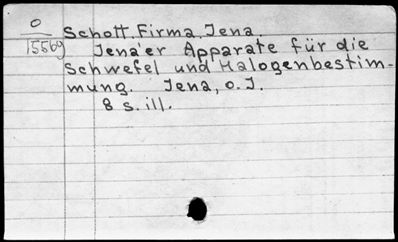 0
15569
Schott. Firma. Jena.
Jena'er Apparate für die
Schwefel und Halogenbestim-
mung. Jena, o. J.
8 s. ill.